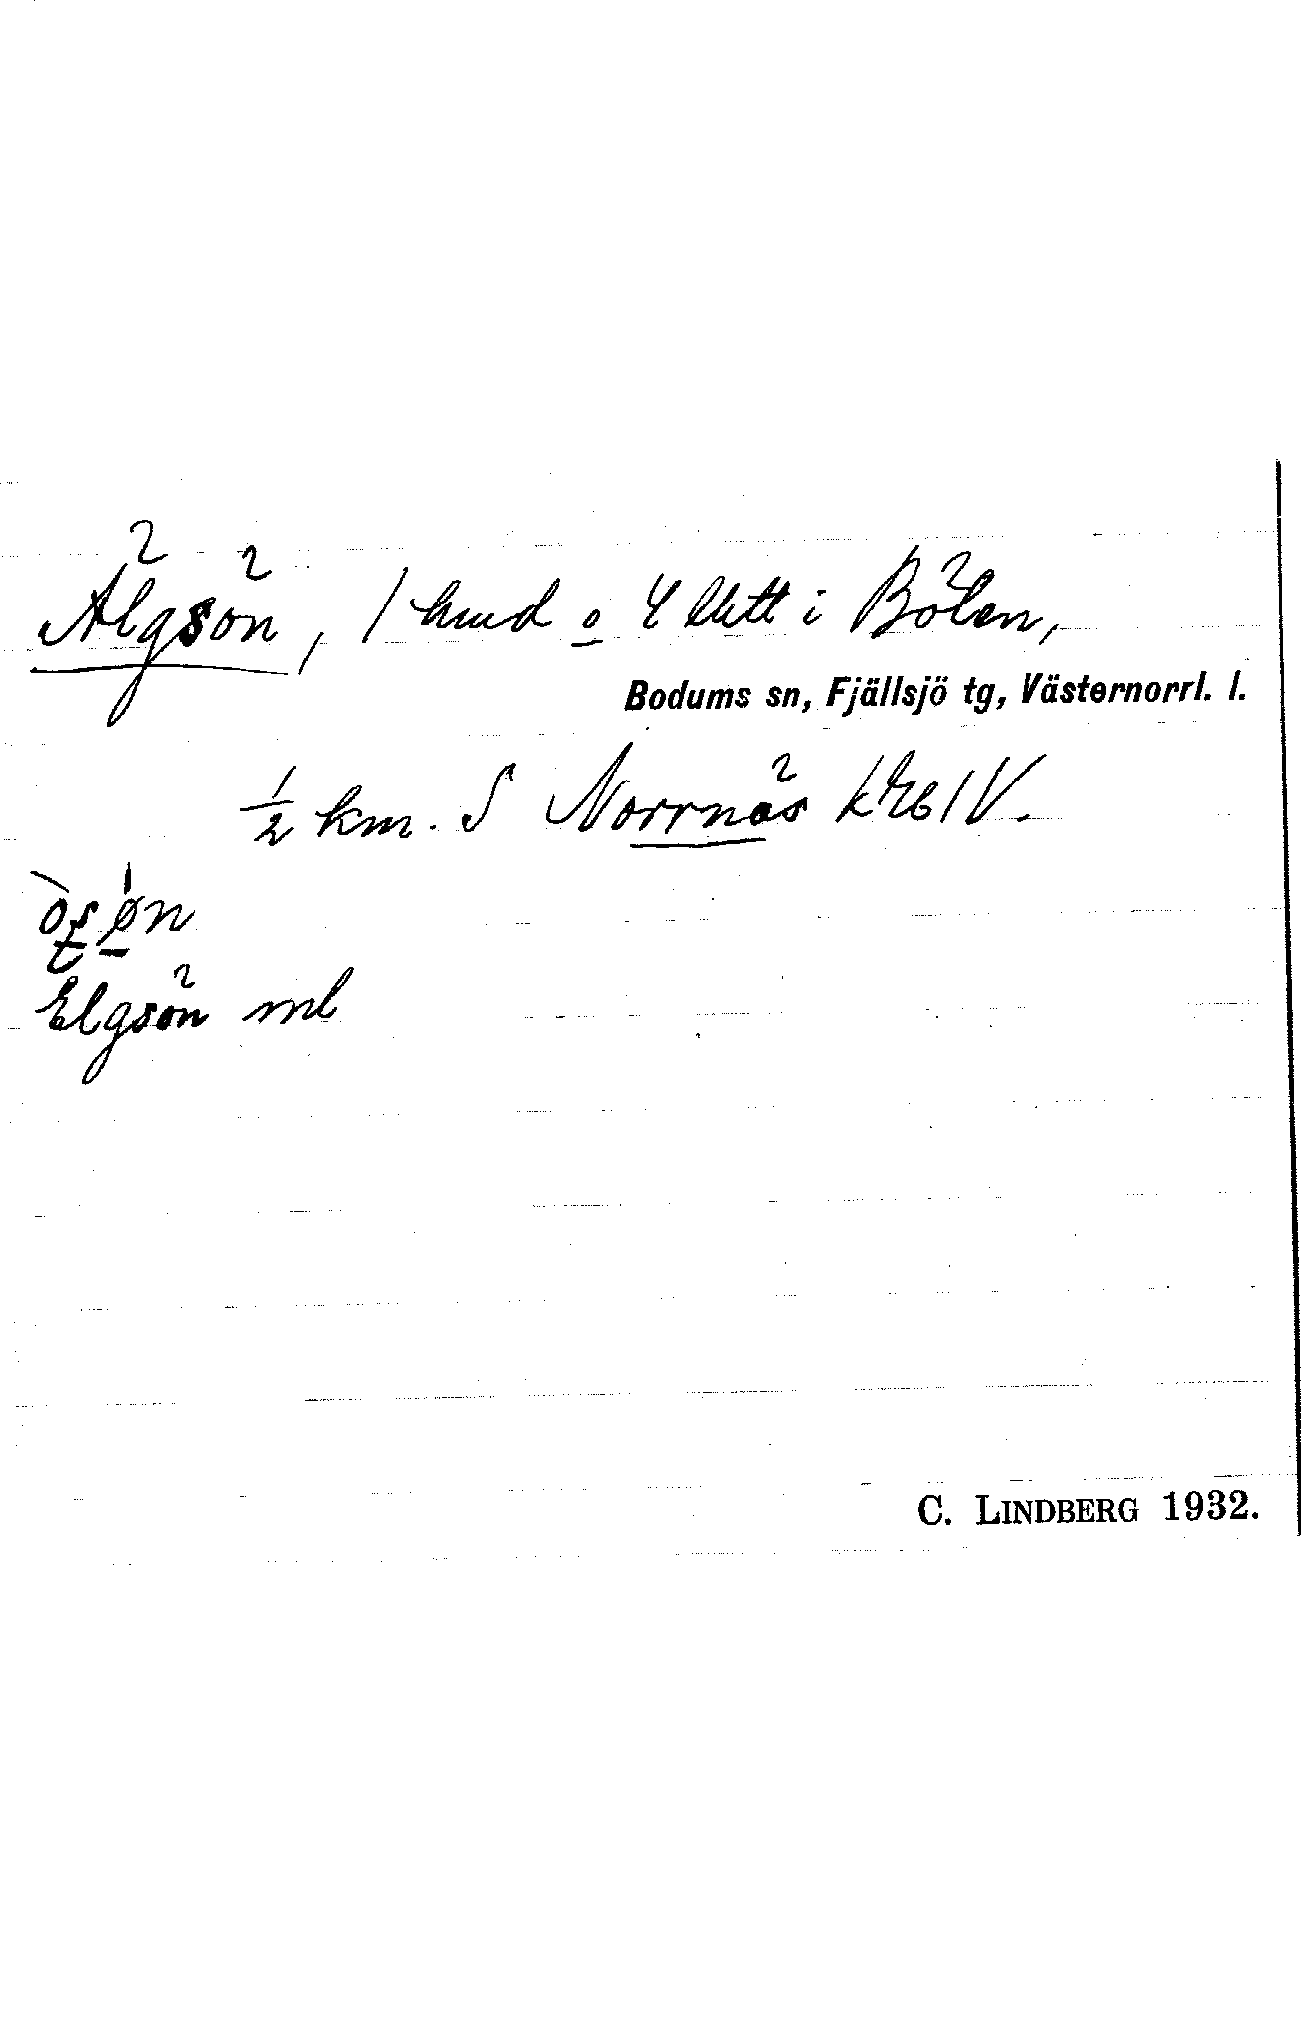 Älgsön, 1 hmd o 4 litt i Bölen,
Bodums sn, Fjällsjö tg, Västernorrl. l.
1/2 km. S Norrnäs
Elgsön ml
C. LINDBERG 1932.